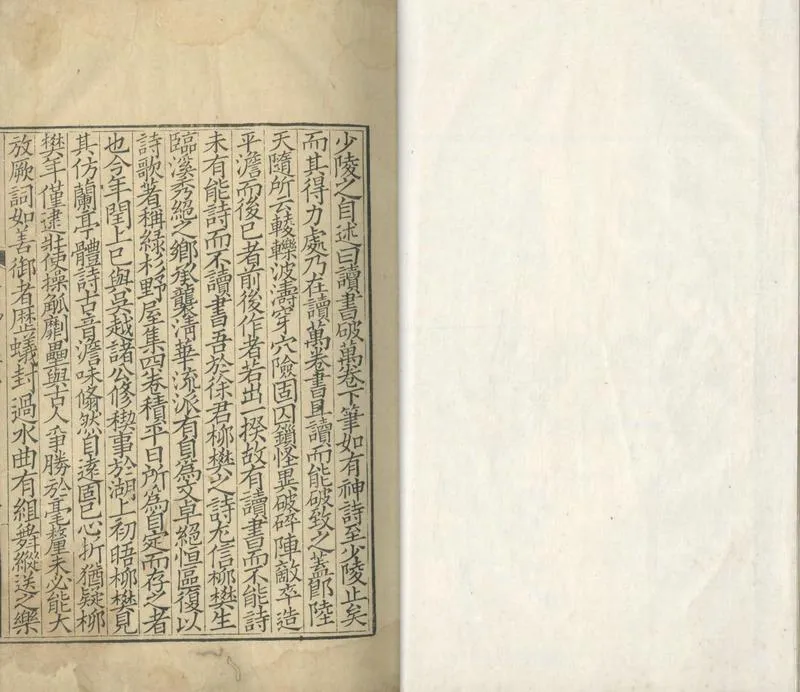 少陵之自述曰讀書破萬卷下筆如有神詩至少陵止矣
而其得力處乃在讀萬卷書且讀而能破致之蓋卽陸
天隨所云轥轢波濤穿穴險固囚鎖怪異破碎陣敵卒造
平澹而後已者前後作者若出一揆故有讀書而不能詩
未有能詩而不讀書吾於徐君柳樊之詩尤信柳樊生
臨溪秀絕之鄉承襲淸華流派有自為文卓絕恒區復以
詩歌著稱緑杉野屋集四卷積平日所為自定而存之者
也今年閏上巳與吳越諸公修禊事於湖上初晤柳樊見
其仿蘭亭體詩古音澹味翛然自遠固已心折猶疑柳
樊年僅逮壯使操觚劘壘與古人爭勝於毫釐未必能大
放厥詞如善御者歷蟻封過水曲有組舞縱送之樂